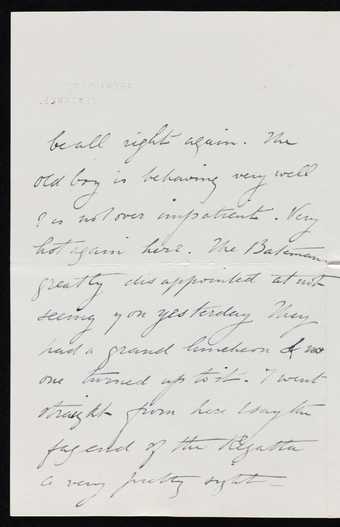 be all right again. The
old boy is behaving very well
& is not over impatient. Very
hot again here. The Batemans
greatly disappointed at not
seeing you yesterday They
had a grand luncheon & no
one turned up to it. I went
straight from here & saw the
fag end of the Regatta
a very pretty sight –